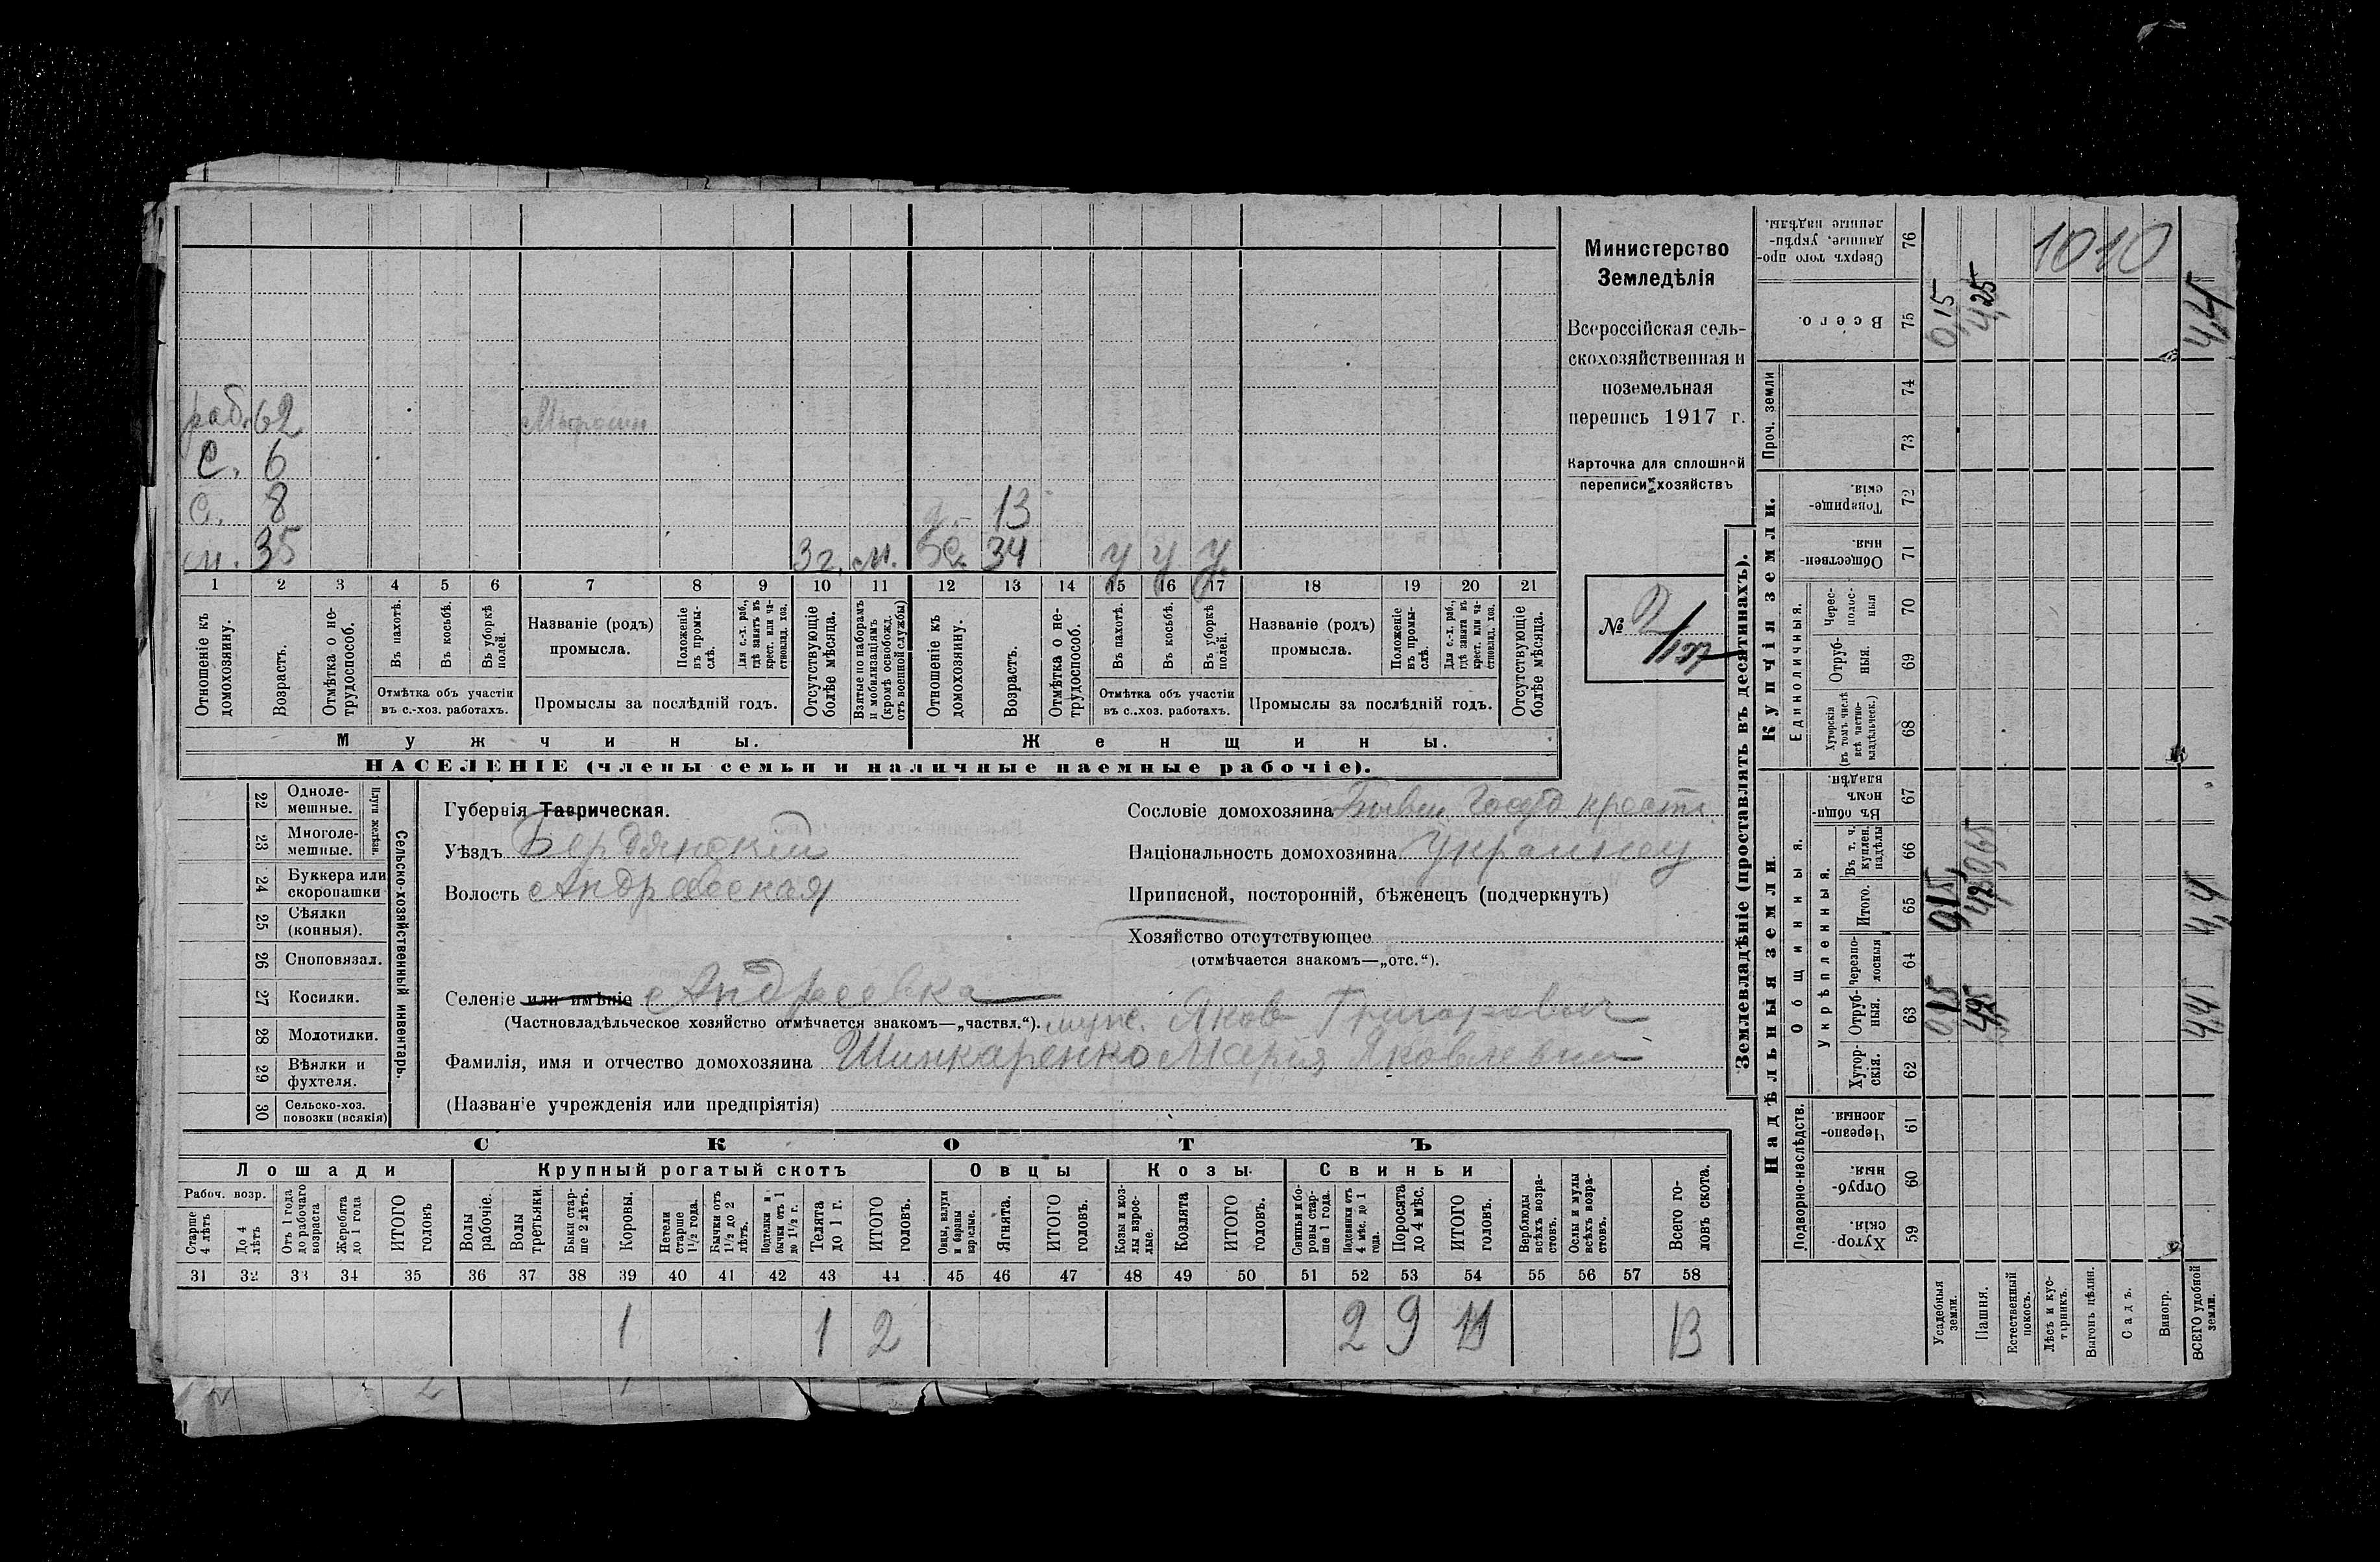 1010
Министерство
Земледѣлія
Всероссійская сель-
скохозяйственная и
поземельная
перепись 1917 г.
Карточка для сплошной
переписи хозяйствъ
№ 2/137
раб. 62
с. 6
с. 8 13
м. 35 3 г. м. 34 У У У
1 2 3 4 5 6 7 8 9 10 11 12 13 14 15 16 17 18 19 20 21
Отношеніе къ домохозяину.
Возрастъ.
Отмѣтка о не-трудоспособ.
Въ пахотѣ.
Въ косьбѣ.
Въ уборкѣ полей.
Отмѣтка объ участіи въ с.-хоз. работахъ.
Названіе (родъ) промысла.
Положеніе въ промы-слѣ.
Для с.-х. раб., гдѣ занятъ въ крест. или ча-стновлад. хоз.
Промыслы за послѣдній годъ.
Отсутствующіе болѣе мѣсяца.
Взятые по наборамъ и мобилизаціямъ (кромѣ освобожд. отъ военной службы)
Отношеніе къ домохозяину.
Возрастъ.
Отмѣтка о не-трудоспособ.
Въ пахотѣ.
Въ косьбѣ.
Въ уборкѣ полей.
Отмѣтка объ участіи въ с.-хоз. работахъ.
Названіе (родъ) промысла.
Положеніе въ промы-слѣ.
Для с.-х. раб., гдѣ занята въ крест. или ча-стновлад. хоз.
Промыслы за послѣдній годъ.
Отсутствующіе болѣе мѣсяца.
Мужчины. Женщины.
НАСЕЛЕНІЕ (члены семьи и наличные наемные рабочіе).
22 Одноле-мешные.
23 Многоле-мешные.
Плуги желѣзн.
24 Буккера или скоропашки
25 Сѣялки (конныя).
26 Сноповязал.
27 Косилки.
28 Молотилки.
29 Вѣялки и фухтеля.
30 Сельско-хоз. повозки (всякія)
Сельско-хозяйственный инвентарь.
Губернія Таврическая.
Уѣздъ Бердянскій
Волость Андреевская
Селеніе или имѣніе Андреевка
(Частновладѣльческое хозяйство отмѣчается знакомъ—„частвл.“).
муж. Яков Григорович
Фамилія, имя и отчество домохозяина Шинкаренко Марія Яковлевна
(Названіе учрежденія или предпріятія)
Сословіе домохозяина Бывш. Госуд крест.
Національность домохозяина Украинец
Приписной, посторонній, бѣженецъ (подчеркнуть)
Хозяйство отсутствующее
(отмѣчается знакомъ—„отс.“).
СКОТЪ
Лошади Крупный рогатый скотъ Овцы Козы Свиньи
Рабоч. возр.
Старше 4 лѣтъ
До 4 лѣтъ
Отъ 1 года до рабочаго возраста
Жеребята до 1 года
ИТОГО головъ
Волы рабочіе.
Волы третьяки.
Быки стар-ше 2 лѣтъ.
Коровы.
Нетели старше 1½ года.
Бычки отъ 1½ до 2 лѣтъ.
Подтелки и бычки отъ 1 до 1½ г.
Телята до 1 г.
ИТОГО головъ.
Овцы, валухи и бараны взрослые.
Ягнята.
ИТОГО головъ.
Козы и коз-лы взрос-лые.
Козлята
ИТОГО головъ.
Свиньи и бо-ровы стар-ше 1 года.
Подсвинки отъ 4 мѣс. до 1 года.
Поросята до 4 мѣс.
ИТОГО головъ.
Верблюды всѣхъ возра-стовъ.
Ослы и мулы всѣхъ возра-стовъ.
Всего го-ловъ скота.
31 32 33 34 35 36 37 38 39 40 41 42 43 44 45 46 47 48 49 50 51 52 53 54 55 56 57 58
1 1 2 2 9 11 13
Землевладѣніе (проставлять въ десятинахъ).
Надѣльныя земли. Купчія земли. Проч. земли
Подворно-наслѣдств. Общинныя. Единоличныя.
Укрѣпленныя.
59 Хутор-скія.
60 Отруб-ныя.
61 Черезпо-лосныя.
62 Хутор-скія.
63 Отруб-ныя.
64 Черезпо-лосныя
65 Итого.
66 Въ т. ч. куплен. надѣлы
67 Въ общи-номъ владѣн.
68 Хуторскія (въ томъ числѣ всѣ частно-владѣльческ.)
69 Отруб-ныя.
70 Черес-полос-ныя
71 Обществен-ныя.
72 Товарище-скія.
73
74
75 Всего.
76 Сверхъ того про-данные, укрѣп-ленные надѣлы.
Усадебныя земли. 0,15
Пашня. 4,25
Естественный покосъ.
Лѣсъ и кус-тарникъ.
Выгонъ цѣлин.
Садъ.
Виногр.
ВСЕГО удобной земли. 4,4 4,4 4,4